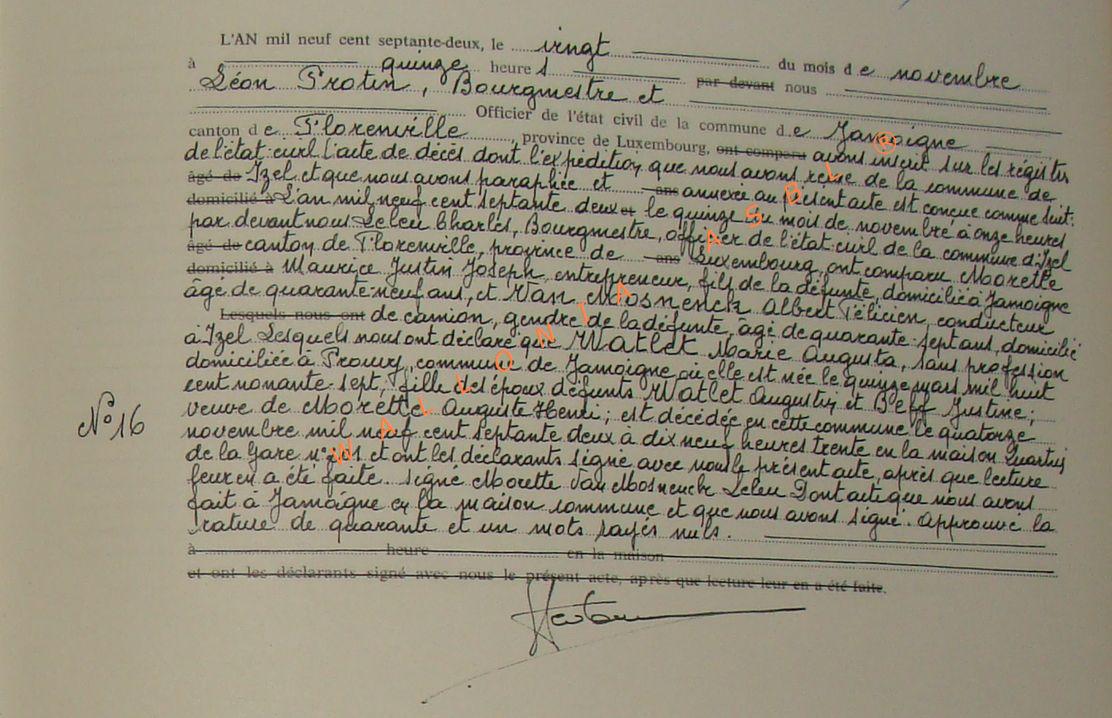 L'AN mil neuf cent septante-deux, le vingt du mois de novembre
à quinze heures par devant nous
Léon Protin, Bourgmestre et
Officier de l'état civil de la commune de Jamoigne
canton de Florenville province de Luxembourg, ont comparu avons inscrit sur les régistres
de l'état-civil l'acte de décès dont l'expédition que nous avons reçue de la commune de
âgé de Izel et que nous avons paraphée et ans annexée au présent acte est conçue comme suit:
domicilié à L'an mil neuf cent septante deux et le quinze du mois de novembre à onze heures
par devant nous Leleu Charles, Bourgmestre, officier de l'état-civil de la commune d'Izel
âgé de canton de Florenville, province de ans Luxembourg, ont comparu Morette
domicilié à Maurice Justin Joseph, entrepreneur, fils de la défunte, domicilié à Jamoigne
âgé de quarante-neuf ans, et Van Mosnenck Albert Félicien, conducteur
Lesquels nous ont de camion, gendre de la défunte, âgé de quarante-sept ans, domicilié
à Izel Lesquels nous ont déclaré que Watlet Marie Augusta, sans profession
domiciliée à Prouvy, commune de Jamoigne où elle est née le quinze mars mil huit
cent nonante sept, fille des époux défunts Watlet Augustin et Beff Justine;
veuve de Morette Auguste Henri; est décédée en cette commune le quatorze
N° 16
novembre mil neuf cent septante deux à dix neuf heures trente en la maison Quartier
de la Gare et ont les déclarants signé avec nous le présent acte, après que lecture
leur en a été faite. signé Morette Van Mosnenck Leleu Dont acte que nous avons
fait à Jamoigne en la maison commune et que nous avons signé. Approuvé la
rature de quarante et un mots rayés nuls.
à heure en la maison
et ont les déclarants signé avec nous le présent acte, après que lecture leur en a été faite.
WALLONIA ASBL ®